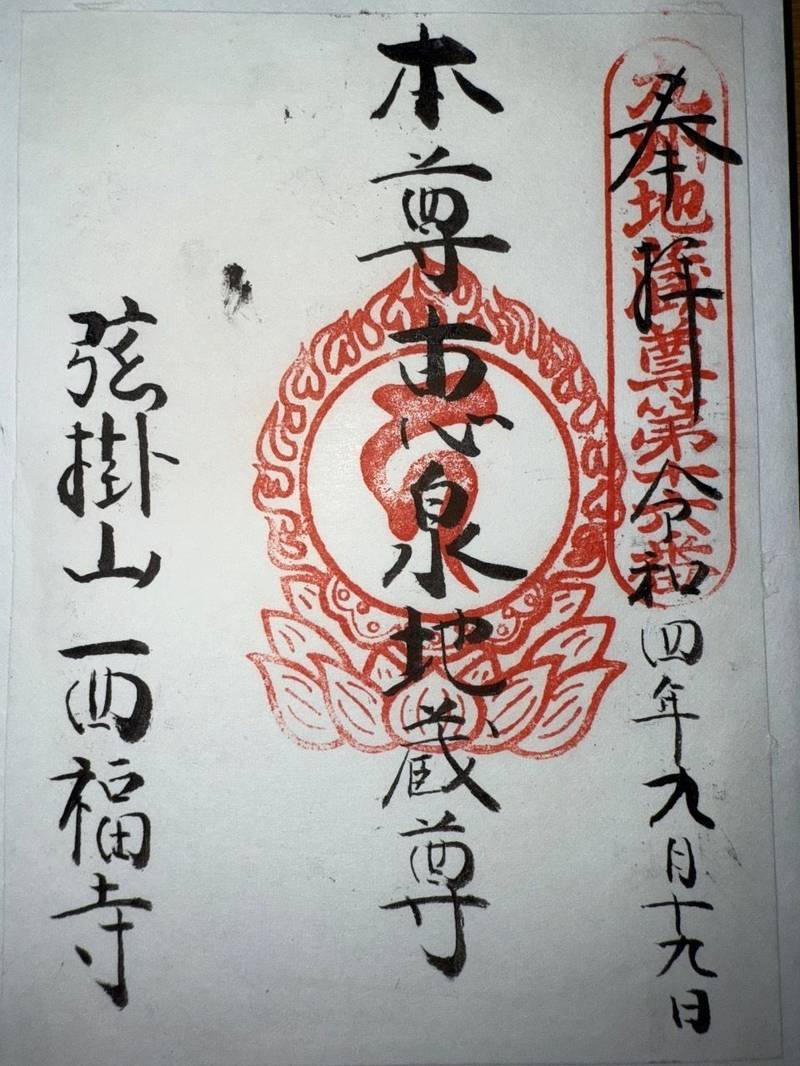 奉拝 令和四年九月十九日
九州地蔵尊第十六番
本尊恵泉地蔵尊
弦掛山西福寺